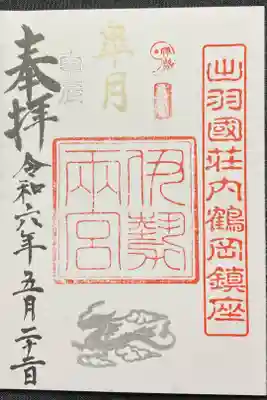 出羽國荘内鶴岡鎮座
皐月
甲辰
伊勢
両宮
奉拝
令和六年五月二十二日